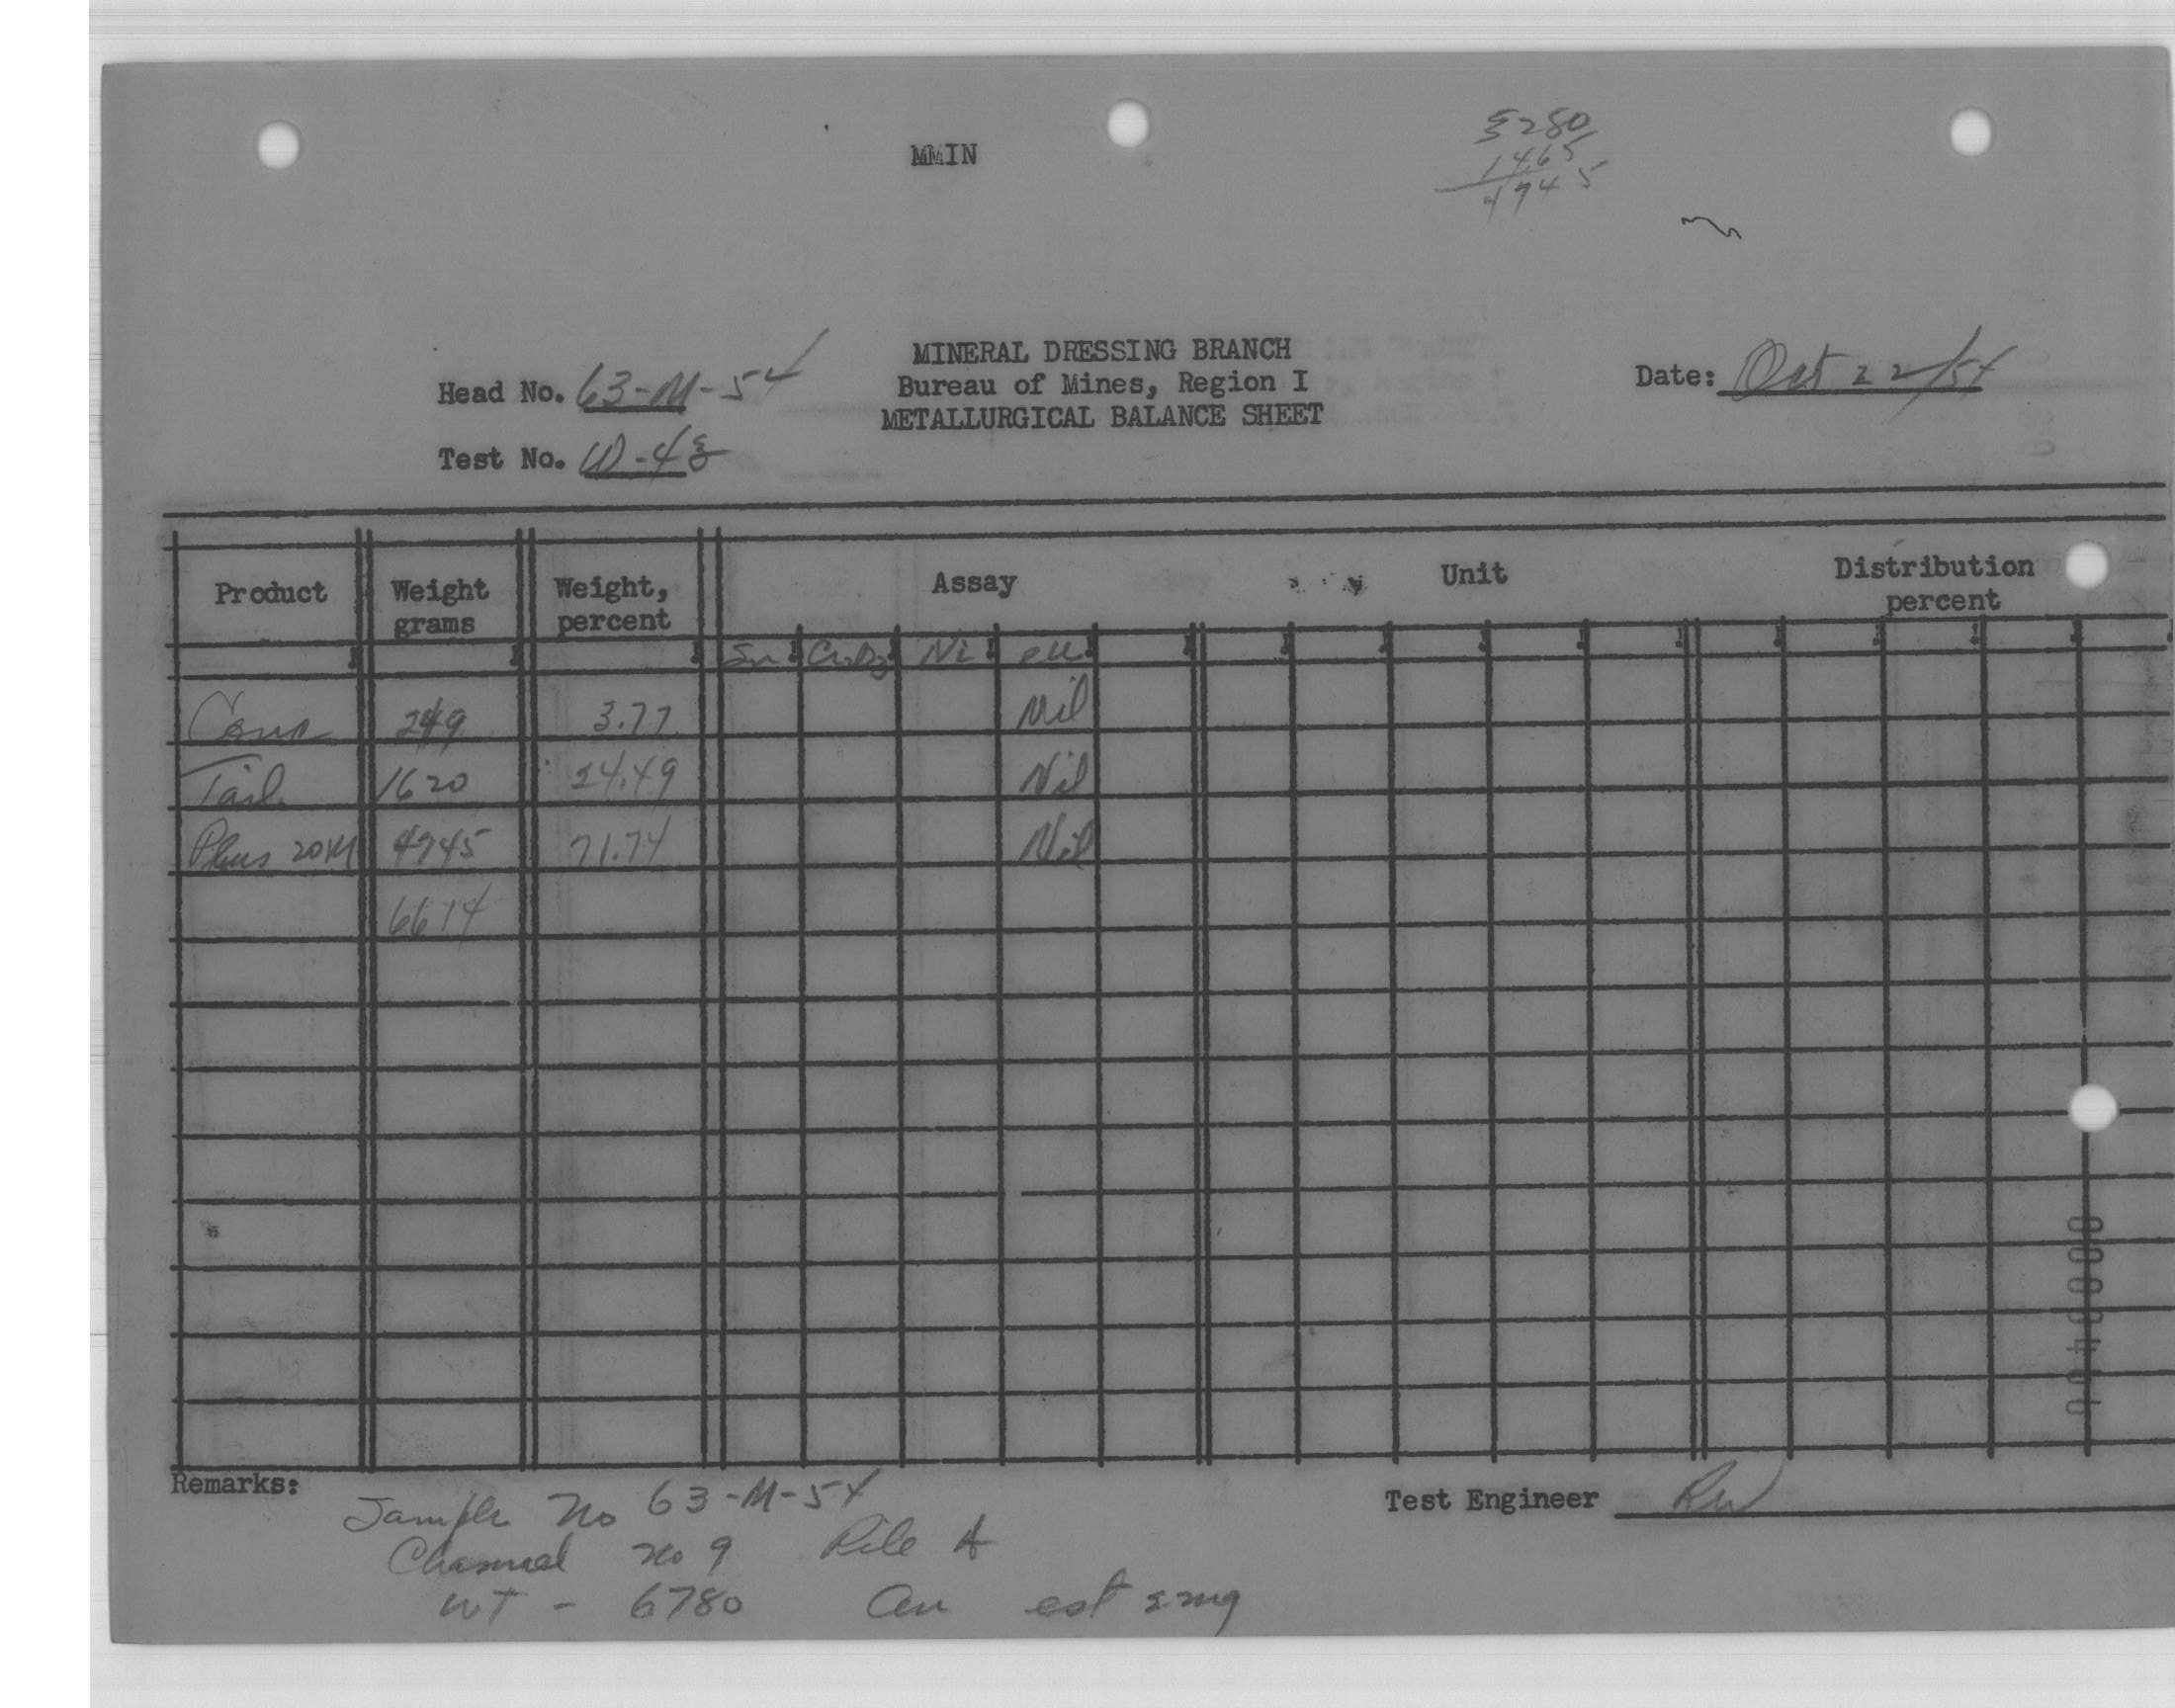 MMIN
3280
1465
4745
MINERAL DRESSING BRANCH
Head No. 63-M-54 Bureau of Mines, Region I Date: Oct 22/54
METALLURGICAL BALANCE SHEET
Test No.
Product Weight grams Weight, percent Assay Unit Distribution percent
Sn Ni eU
Conc 249 3.77 Nil
Tail 1620 24.49 Nil
Plus 20M 4745 71.74 Nil
6614
Remarks: Test Engineer RW
Sample No 63-M-54
Channel no 9 Pile A
WT - 6780 Au est 2mg